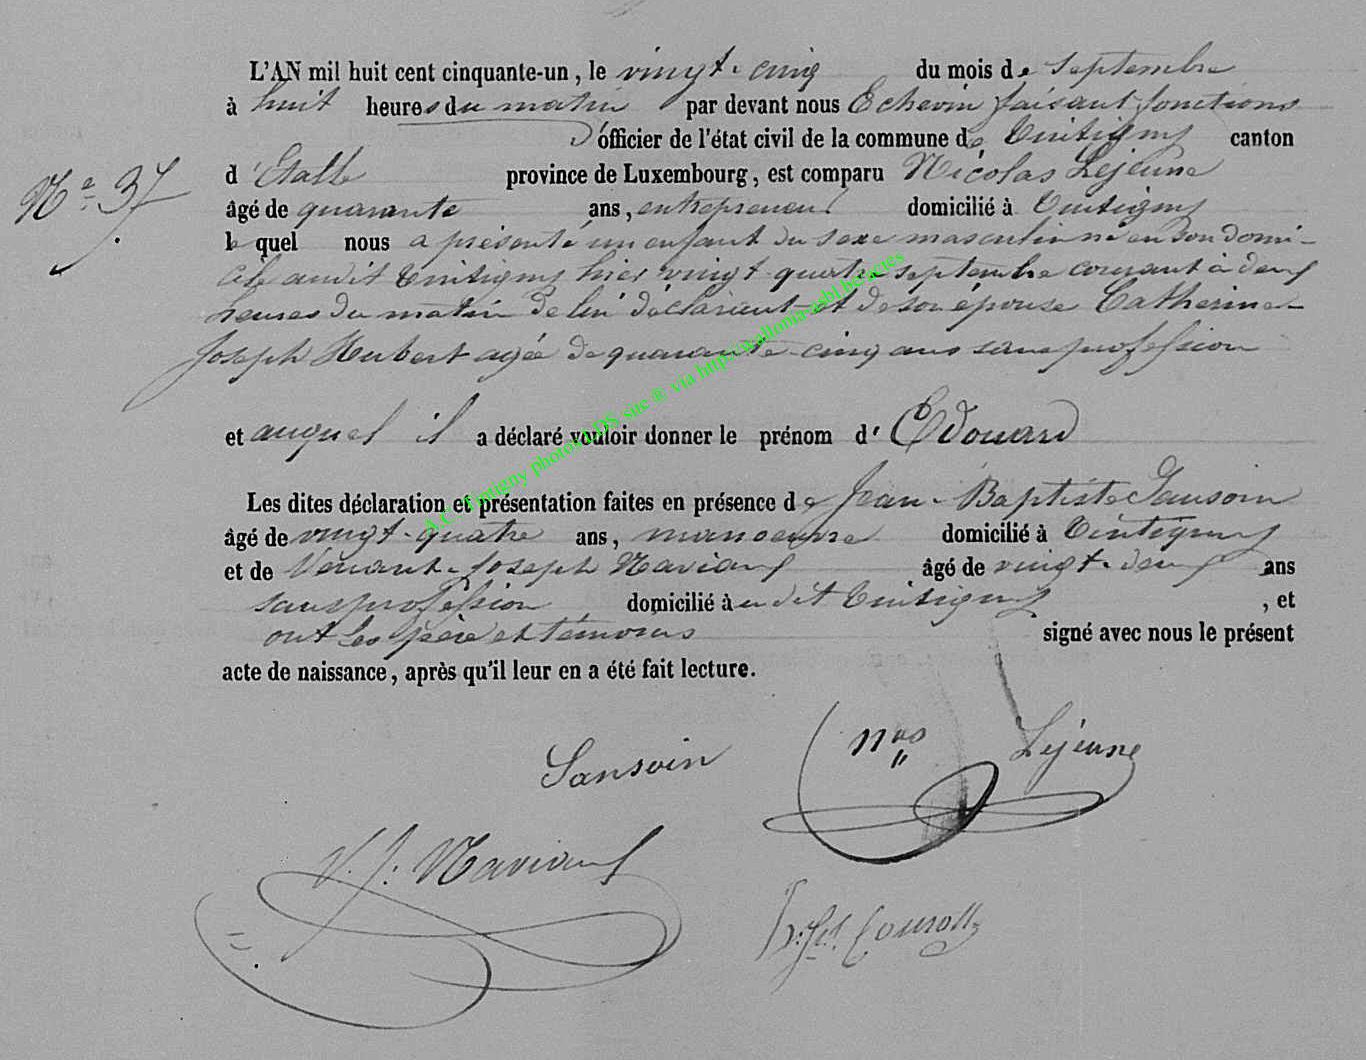 L'AN mil huit cent cinquante-un, le vingt-cinq du mois de septembre
à huit heures du matin par devant nous Echevin faisant fonctions
d'officier de l'état civil de la commune de Tintigny canton
N° 37
d'Etalle province de Luxembourg, est comparu Nicolas Lejeune
âgé de quarante ans, entrepreneur domicilié à Tintigny
lequel nous a présenté un enfant du sexe masculin né en son domi-
cile audit Tintigny hier vingt-quatre septembre courant à deux
heures du matin de lui déclarant et de son épouse Catherine-
Joseph Hubert agée de quarante-cinq ans sans profession
et auquel il a déclaré vouloir donner le prénom d'Edouard
Les dites déclaration et présentation faites en présence de Jean-Baptiste Sansoin
âgé de vingt-quatre ans, manoeuvre domicilié à Tintigny
et de Venant-Joseph Naviaux âgé de vingt-deux ans
sans profession domicilié à audit Tintigny, et
ont les père et témoins signé avec nous le présent
acte de naissance, après qu'il leur en a été fait lecture.
Sansoin Nas Lejeune
V. J. Naviaux
A.C. Tintigny photos LDS suc ® via http://wallonia-asbl.be/actes